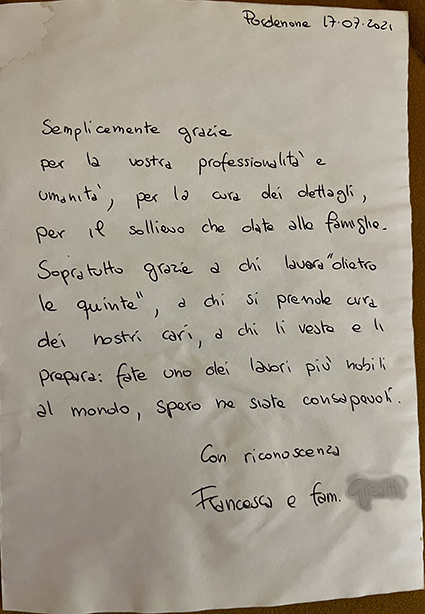 Pordenone 17.07.2021
Semplicemente grazie
per la vostra professionalità e
umanità, per la cura dei dettagli,
per il sollievo che date alle famiglie.
Sopratutto grazie a chi lavora "dietro
le quinte", a chi si prende cura
dei nostri cari, a chi li veste e li
prepara: fate uno dei lavori più nobili
al mondo, spero ne siate consapevoli.
Con riconoscenza
Francesca e fam.